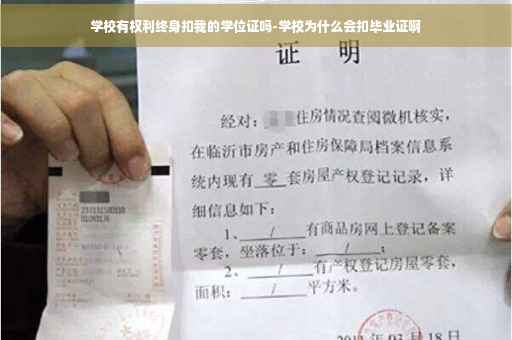 学校有权利终身扣我的学位证吗-学校为什么会扣毕业证啊
证 明
经对：住房情况查阅微机核实，
在临沂市房产和住房保障局档案信息系
统内现有 零 套房屋产权登记记录，详
细信息如下：
1、 / 有商品房网上登记备案
零套，坐落位于： / ；
2、 / 有产权登记房屋零套，
面积： / 平方米。
03月18日